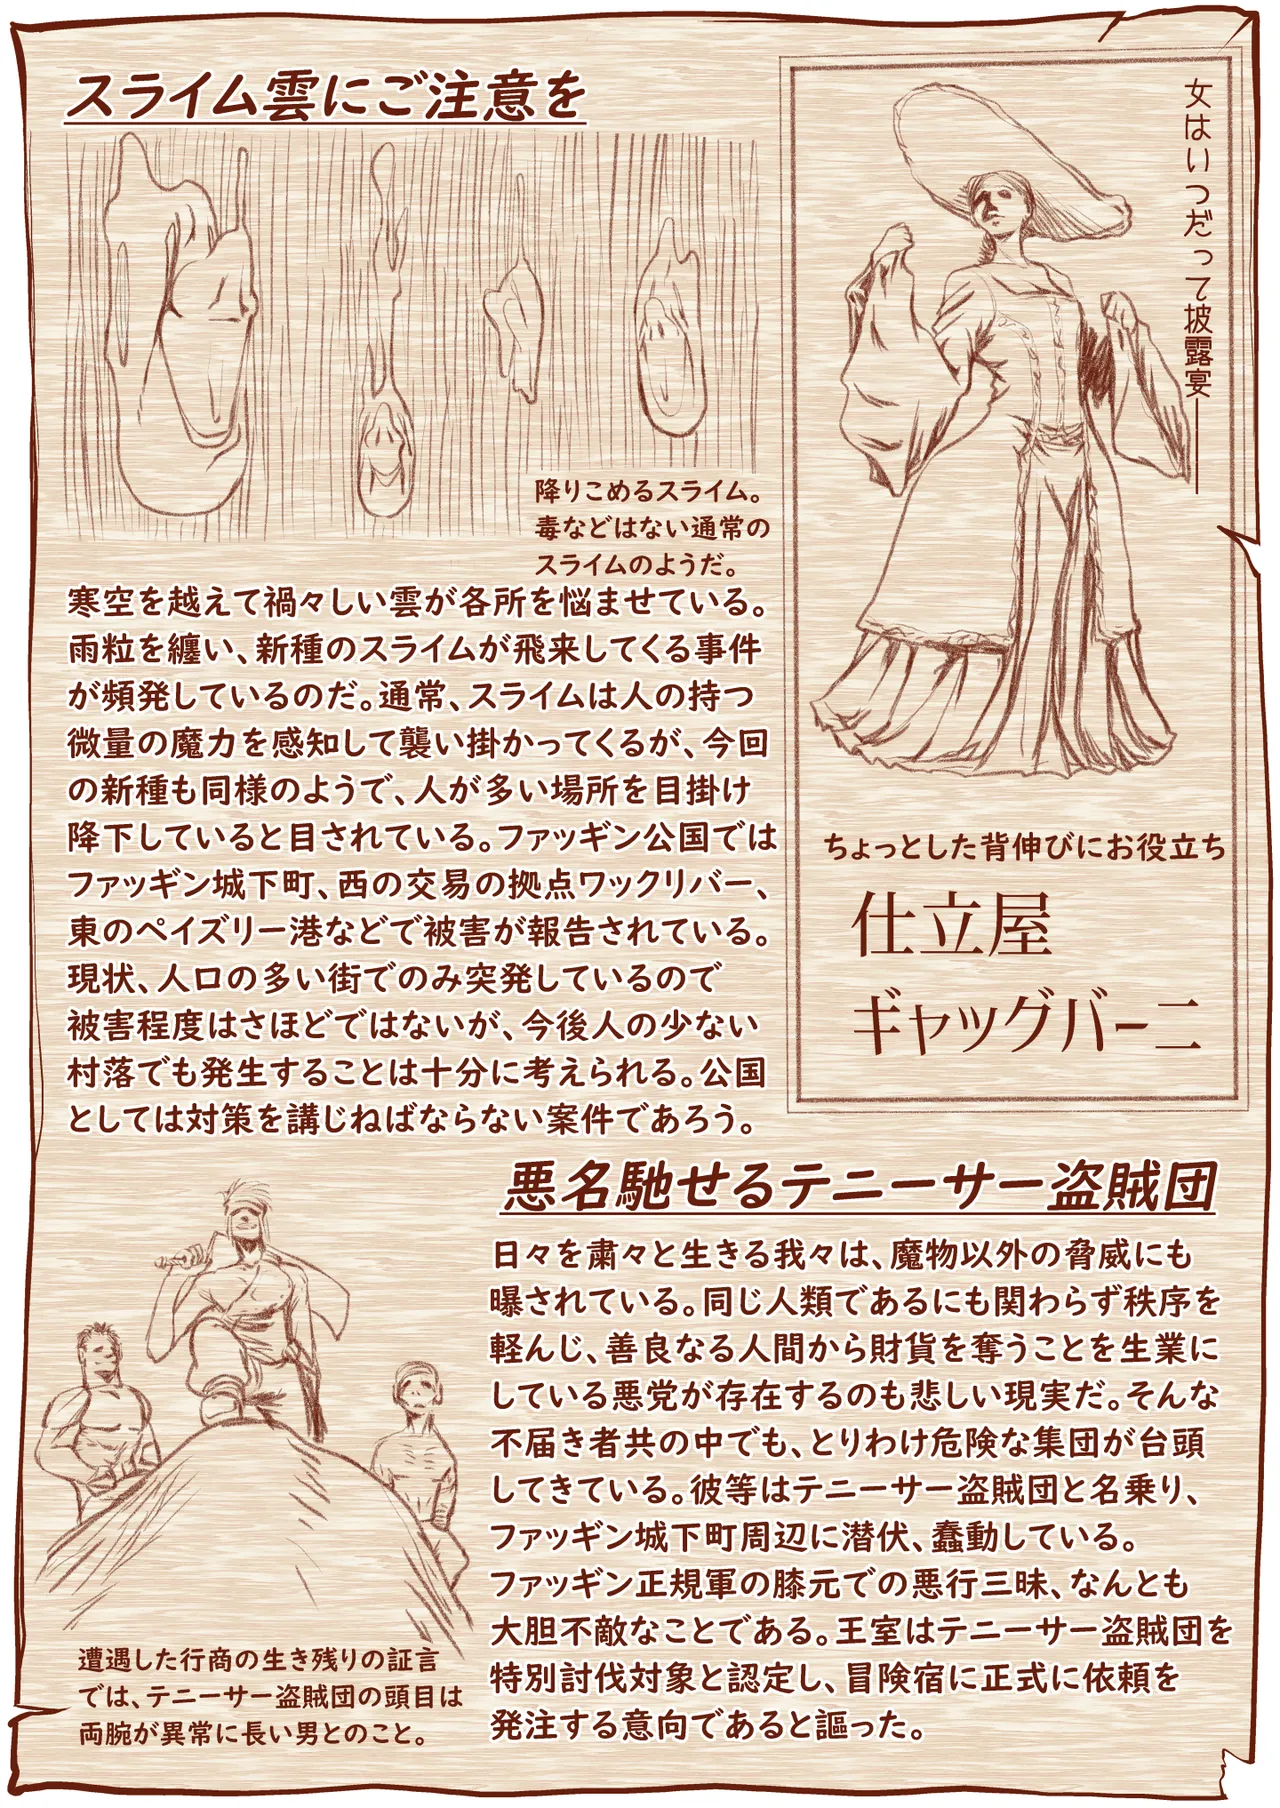 スライム雲にご注意を
降りこめるスライム。
毒などはない通常の
スライムのようだ。
寒空を越えて禍々しい雲が各所を悩ませている。
雨粒を纏い、新種のスライムが飛来してくる事件
が頻発しているのだ。通常、スライムは人の持つ
微量の魔力を感知して襲い掛かってくるが、今回
の新種も同様のようで、人が多い場所を目掛け
降下していると目されている。ファッギン公国では
ファッギン城下町、西の交易の拠点ワックリバー、
東のペイズリー港などで被害が報告されている。
現状、人口の多い街でのみ突発しているので
被害程度はさほどではないが、今後人の少ない
村落でも発生することは十分に考えられる。公国
としては対策を講じねばならない案件であろう。
女はいつだって披露宴――
ちょっとした背伸びにお役立ち
仕立屋
ギャッグバーニ
悪名馳せるテニーサー盗賊団
日々を粛々と生きる我々は、魔物以外の脅威にも
曝されている。同じ人類であるにも関わらず秩序を
軽んじ、善良なる人間から財貨を奪うことを生業に
している悪党が存在するのも悲しい現実だ。そんな
不届き者共の中でも、とりわけ危険な集団が台頭
してきている。彼等はテニーサー盗賊団と名乗り、
ファッギン城下町周辺に潜伏、蠢動している。
ファッギン正規軍の膝元での悪行三昧、なんとも
大胆不敵なことである。王室はテニーサー盗賊団を
特別討伐対象と認定し、冒険宿に正式に依頼を
発注する意向であると謳った。
遭遇した行商の生き残りの証言
では、テニーサー盗賊団の頭目は
両腕が異常に長い男とのこと。